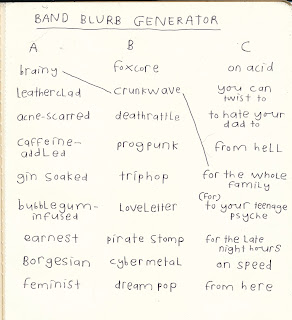 BAND BLURB GENERATOR
A B C
brainy foxcore on acid
leatherclad crunkwave you can twist to
acne-scarred deathrattle to hate your dad to
caffeine-addled progpunk from hell
gin soaked triphop for the whole family
bubblegum-infused Loveletter (for) to your teenage psyche
earnest pirate stomp for the late night hours
Borgesian cybermetal on speed
feminist dream pop from here